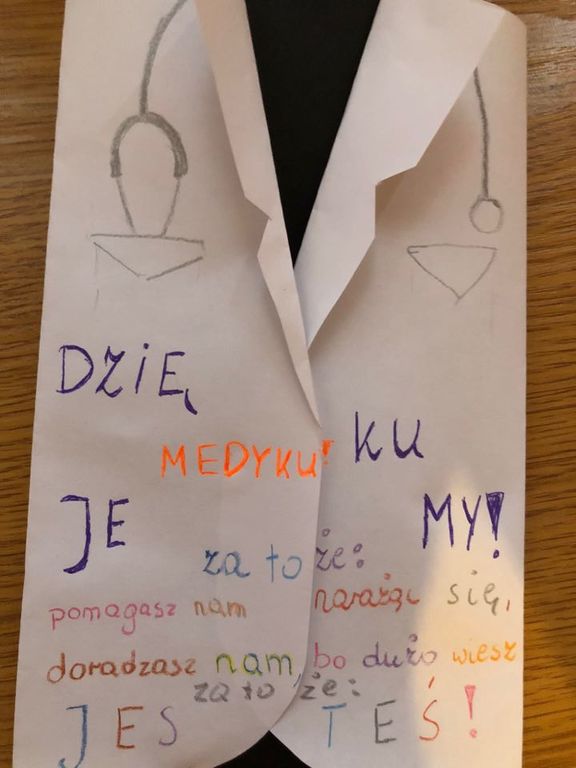 DZIĘ KU
MEDYKU!
JE MY!
za to że:
pomagasz nam narażąc się,
doradzasz nam bo dużo wiesz
za to że:
JES TEŚ!